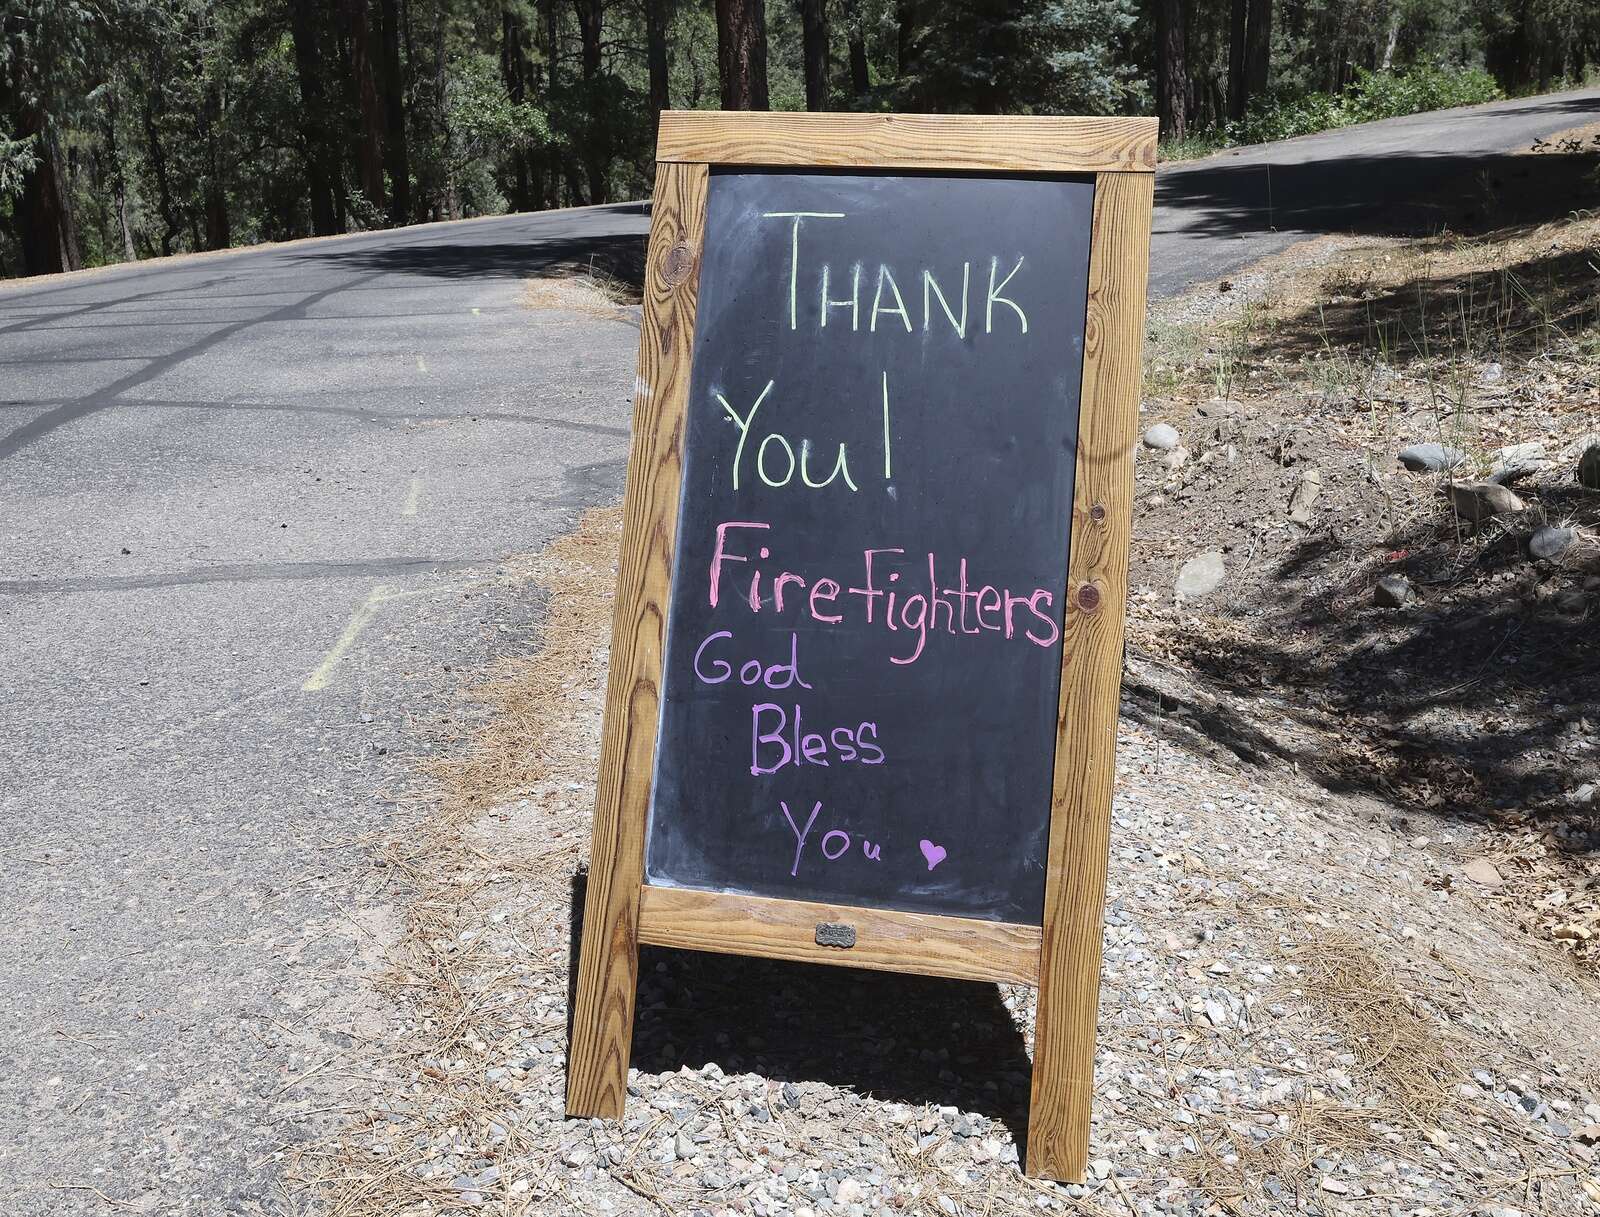 THANK
You!
Firefighters
God
Bless
You